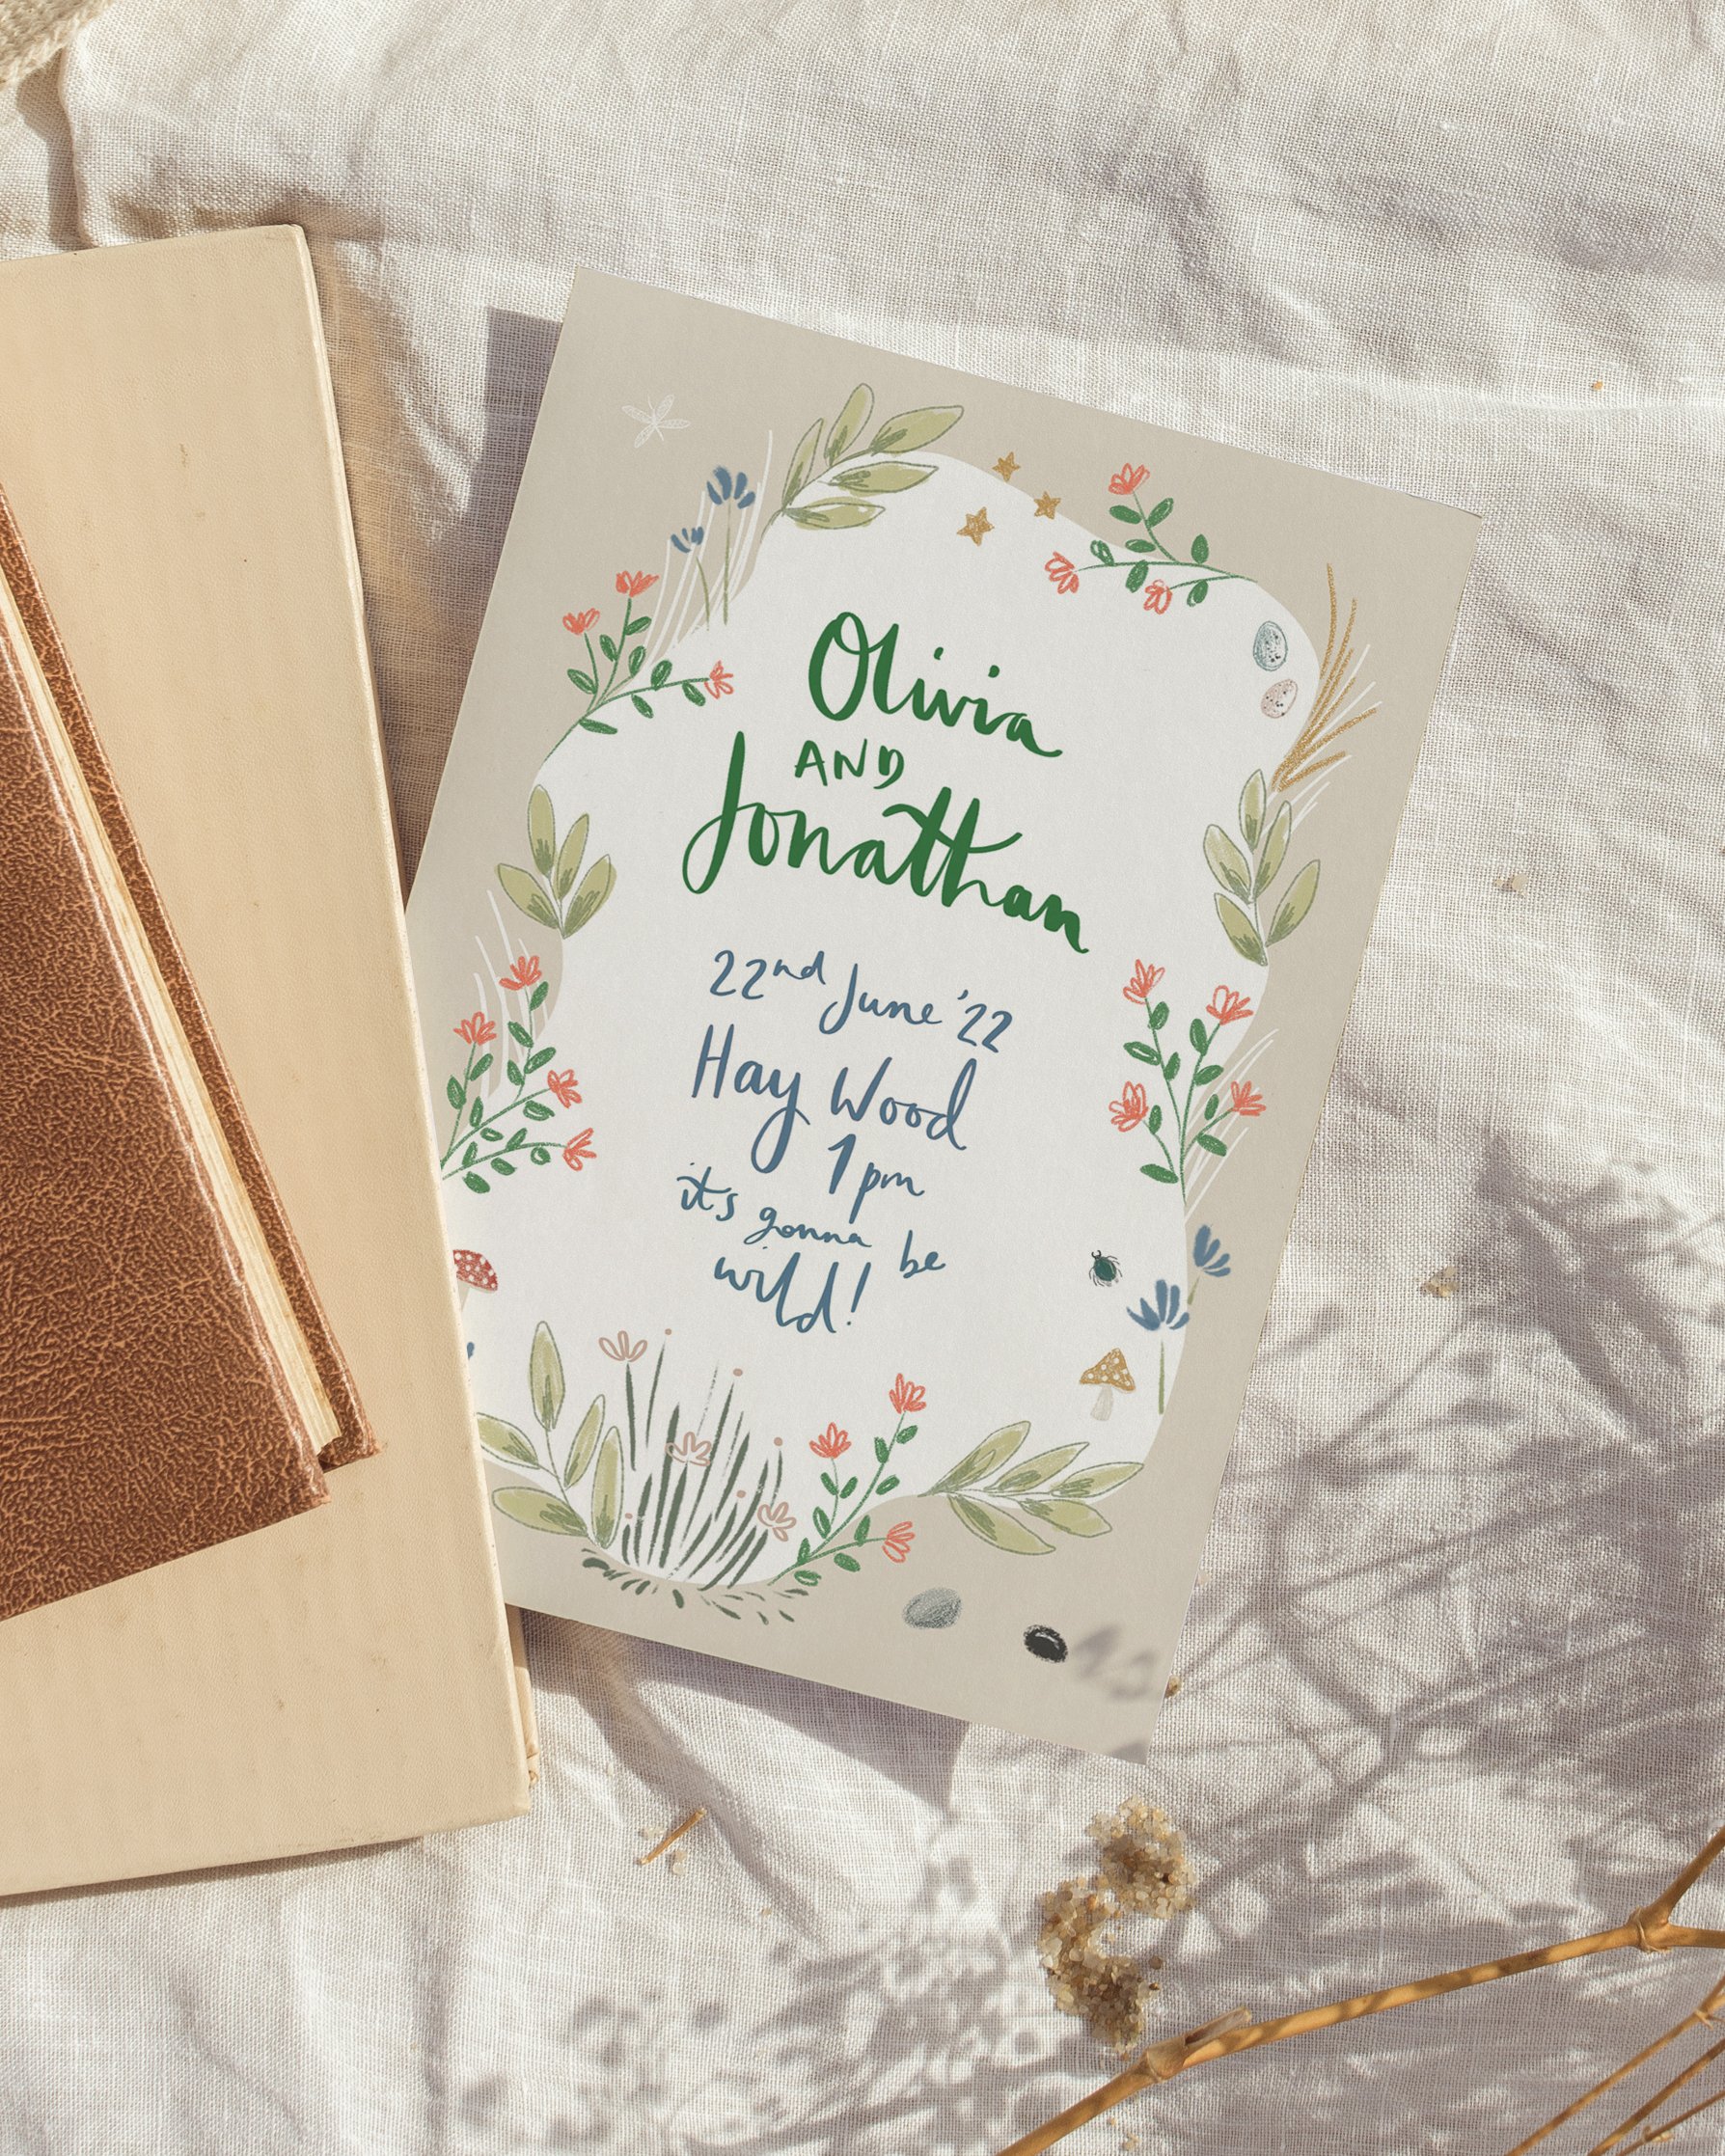 Olivia
AND
Jonathan
22nd June '22
Hay Wood
1pm
it's gonna be
wild!